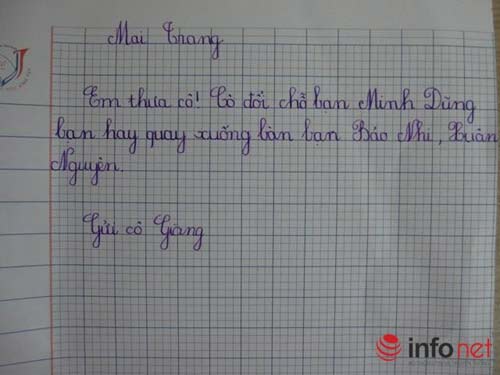 Mai Trang
Em thưa cô! Cô đổi chỗ bạn Minh Dũng
bạn hay quay xuống bàn bạn Bảo Nhi, Xuân
Nguyên.
Gửi cô Giang
infonet